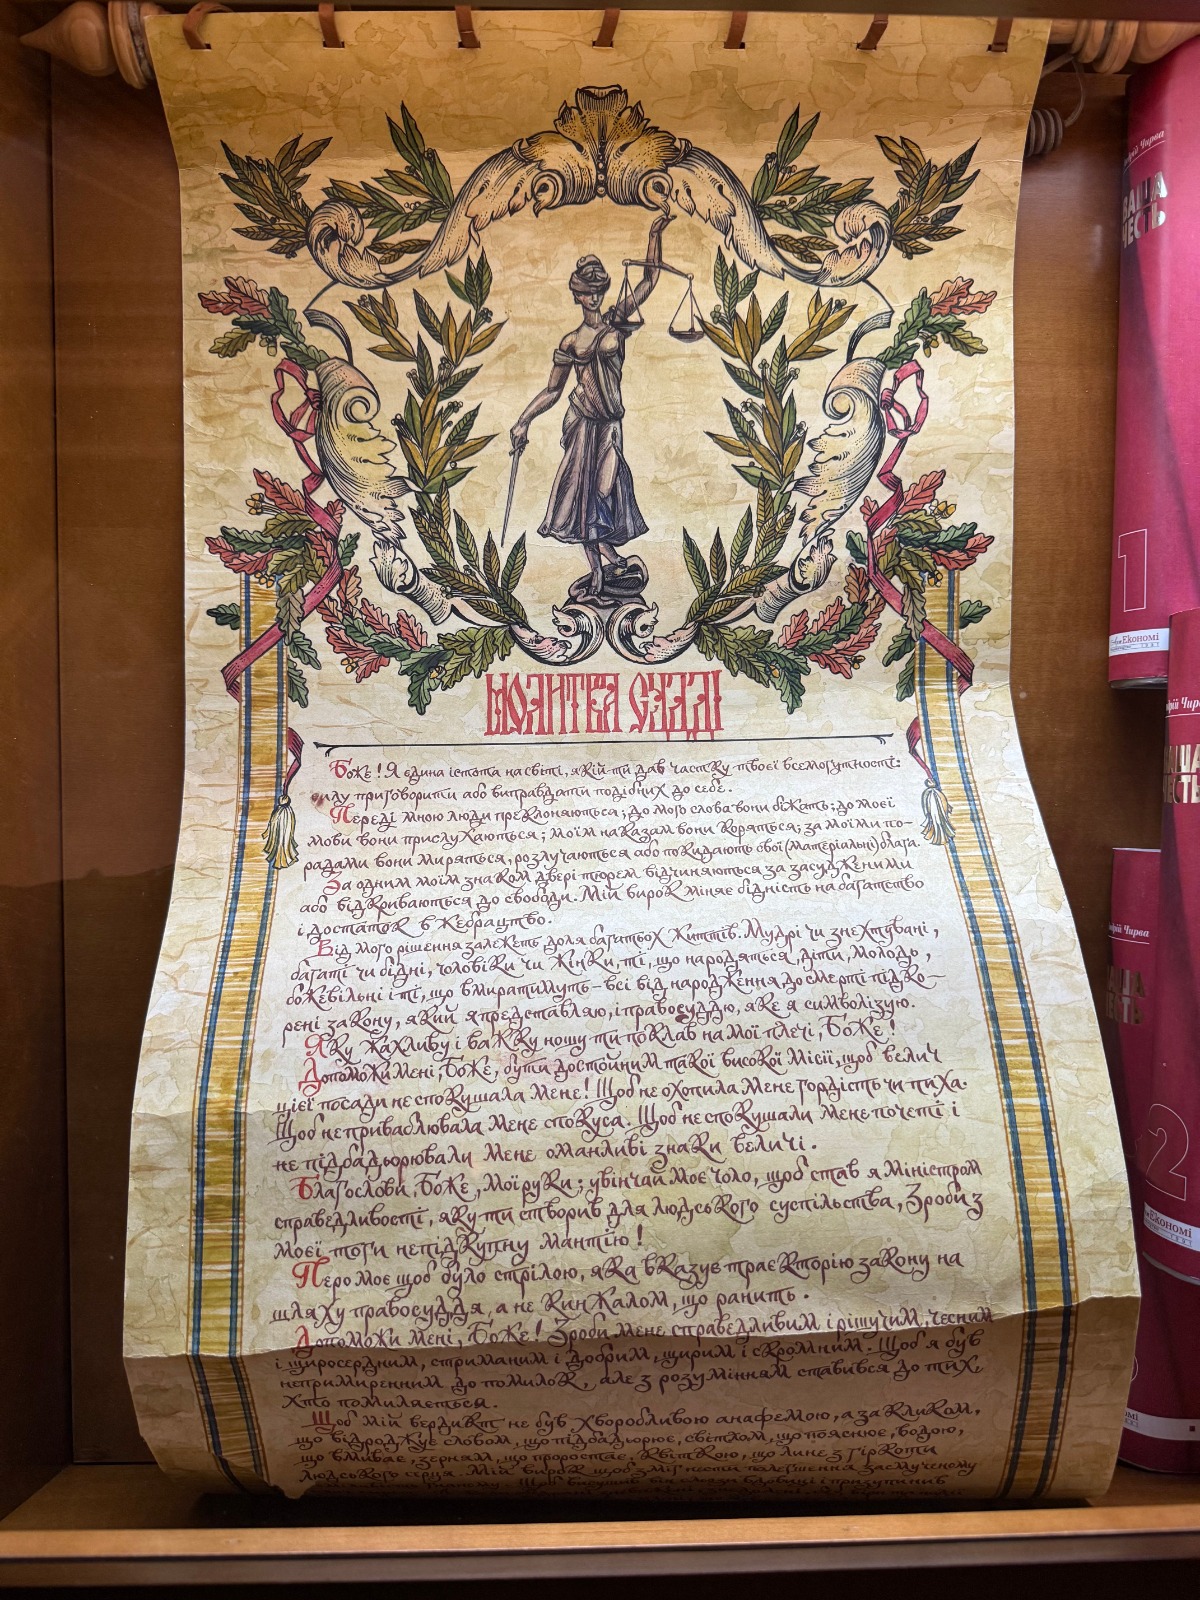 МОЛИТВА СУДДІ
Боже! Я єдина істота на світі, якій ти дав частку твоєї всемогутності:
силу приговорити або виправдати подібних до себе.
Переді мною люди преклоняються; до мого слова вони біжать; до моєї
мови вони прислухаються; моїм наказам вони коряться; за моїми по-
радами вони миряться, розлучаються або покидають свої (матеріальні) блага.
За одним моїм знаком двері тюрем відчиняються за засудженими
або відкриваються до свободи. Мій вирок міняє бідність на багатство
і достаток в жебрацтво.
Від мого рішення залежеть доля багатьох життів. Мудрі чи знехтувані,
багаті чи бідні, чоловіки чи жінки, ті, що народяться, діти, молодь,
божевільні і ті, що вмиратимуть – всі від народження до смерті підко-
рені закону, який я представляю, і правосуддю, яке я символізую.
Яку жахливу і важку ношу ти поклав на мої плечі, Боже!
Допоможи мені, Боже, бути достойним такої високої місії, щоб велич
цієї посади не спокушала мене! Щоб не охопила мене гордість чи пиха.
Щоб не приваблювала мене спокуса. Щоб не спокушали мене почеті і
не підбадьорювали мене оманливі знаки величі.
Благослови, Боже, мої руки; увінчай моє чоло, щоб став я міністром
справедливості, яку ти створив для людського суспільства, Зроби з
моєї тоги непідкупну мантію!
Перо моє щоб було стрілою, яка вказує траєкторію закону на
шляху правосуддя, а не кинжалом, що ранить.
Допоможи мені, Боже! Зроби мене справедливим і рішучим, чесним
і щиросердним, стриманим і добрим, щирим і скромним. Щоб я був
непримиренним до помилок, але з розумінням ставився до тих,
хто помиляється.
Щоб мій вердикт не був хворобливою анафемою, а закликом,
що відроджує словом, що підбадьорює, світлом, що пояснює, водою,
що вмиває, зерням, що проростає, квіткою, що лине з гіркоти
людського серця. Мій вирок щоб зміг нести полегшення засмученому
ВАША
ЧЕСТЬ
1
Економі
Чирва
ЧЕСТЬ
Чирва
2
Економі